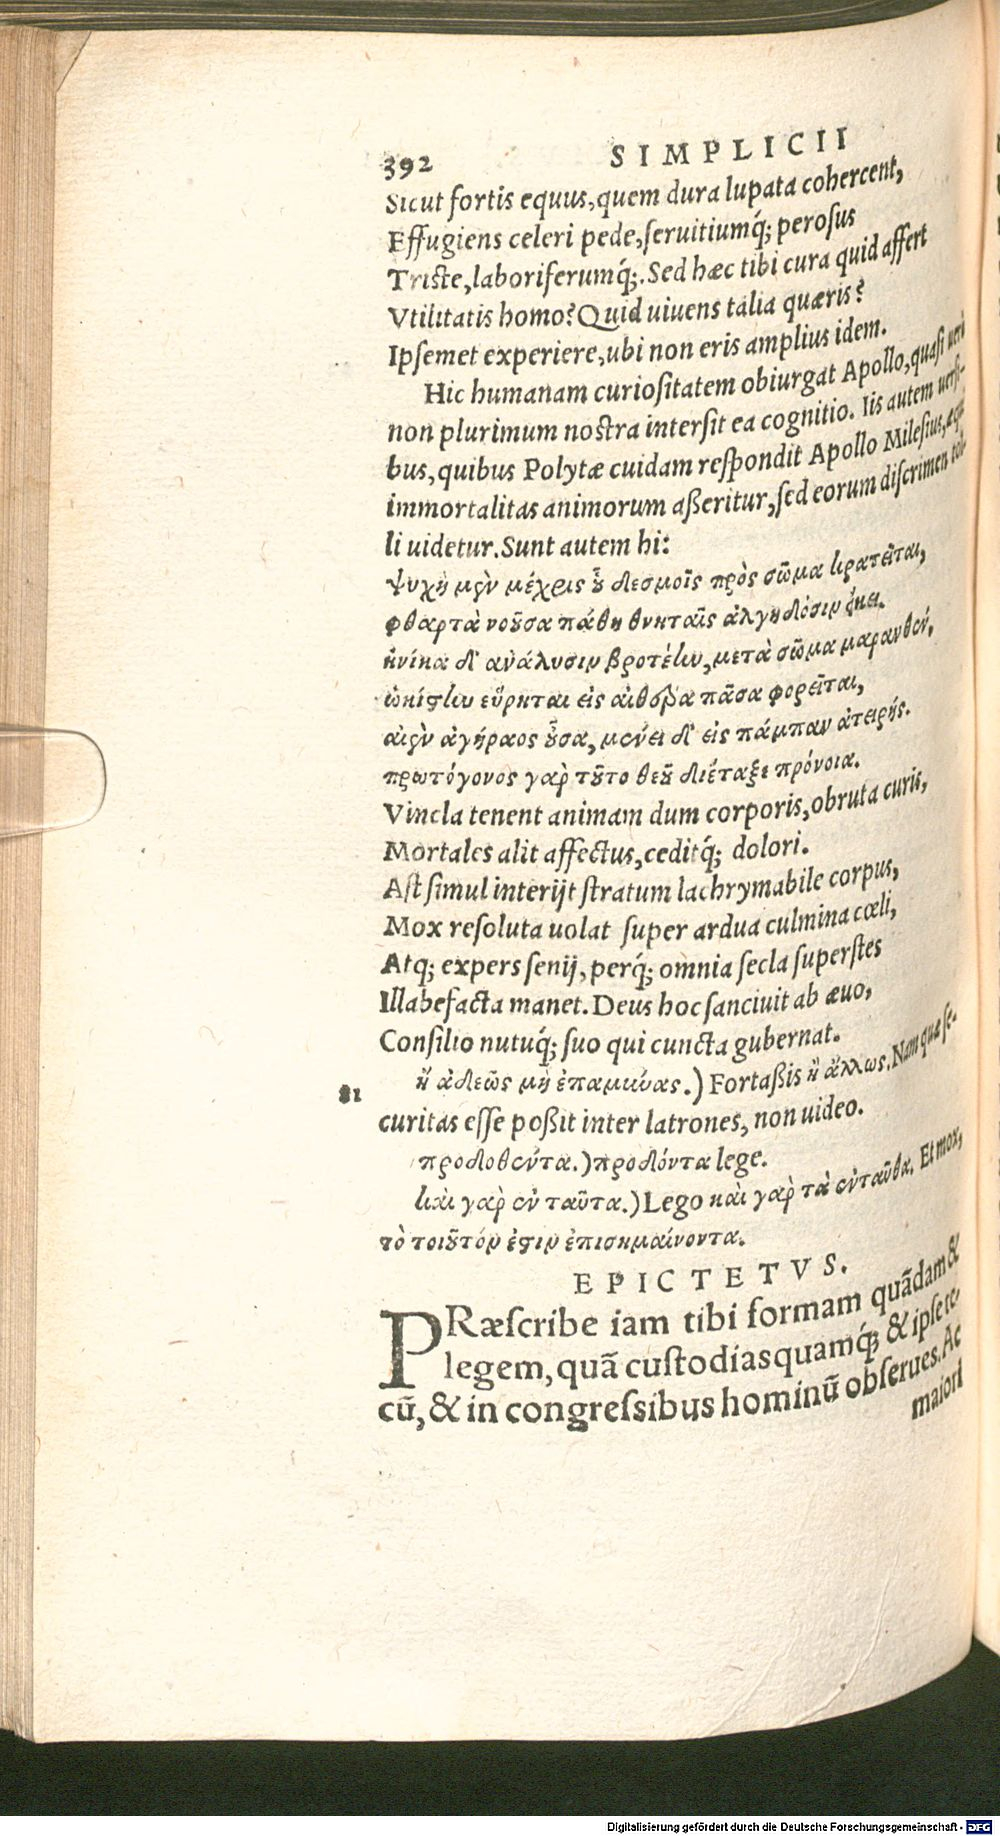 392 SIMPLICII
Sicut fortis equus, quem dura lupata cohercent,
Effugiens celeri pede, seruitiumq́; perosus
Triste, laboriferumq́;. Sed hæc tibi cura quid affert
Vtilitatis homo? Quid uiuens talia quæris?
Ipsemet experiere, ubi non eris amplius idem.
Hic humanam curiositatem obiurgat Apollo, quasi uerò
non plurimum nostra intersit ea cognitio. Iis autem uersi-
bus, quibus Polytæ cuidam respondit Apollo Milesius, æquè
immortalitas animorum aßeritur, sed eorum discrimen tol-
li uidetur. Sunt autem hi:
Ψυχὴ μὲν μέχρις οὗ δεσμοῖς πρὸς σῶμα κρατεῖται,
φθαρτὰ νοοῦσα πάθη θνηταῖς ἀλγηδόσιν εἴκει.
ἡνίκα δ' ἀνάλυσιν βροτέην, μετὰ σῶμα μαρανθὲν,
ὠκίστην εὕρηται εἰς αἰθέρα πᾶσα φορεῖται,
αἰὲν ἀγήραος οὖσα, μένει δ' εἰς πάμπαν ἀτειρής.
πρωτόγονος γὰρ τοῦτο θεοῦ διέταξε πρόνοια.
Vincla tenent animam dum corporis, obruta curis,
Mortales alit affectus, ceditq́; dolori.
Ast simul interijt stratum lachrymabile corpus,
Mox resoluta uolat super ardua culmina cœli,
Atq; expers senij, perq́; omnia secla superstes
Illabefacta manet. Deus hoc sanciuit ab æuo,
Consilio nutuq́; suo qui cuncta gubernat.
81 ἢ ἀδεῶς μὴ ἐπαμύνας.) Fortaßis ἢ ἄλλως. Nam quæ se-
curitas esse poßit inter latrones, non uideo.
προδοθέντα.) προδόντα lege.
καὶ γὰρ ἐν ταῦτα.) Lego καὶ γὰρ τὰ ἐνταῦθα. Et mox,
τὸ τοιοῦτόν ἐστιν ἐπισημαίνοντα.
EPICTETVS.
PRæscribe iam tibi formam quãdam &
legem, quã custodias quamq́; & ipse te-
cũ, & in congressibus hominũ obserues. Ac
maiori
Digitalisierung gefördert durch die Deutsche Forschungsgemeinschaft - DFG